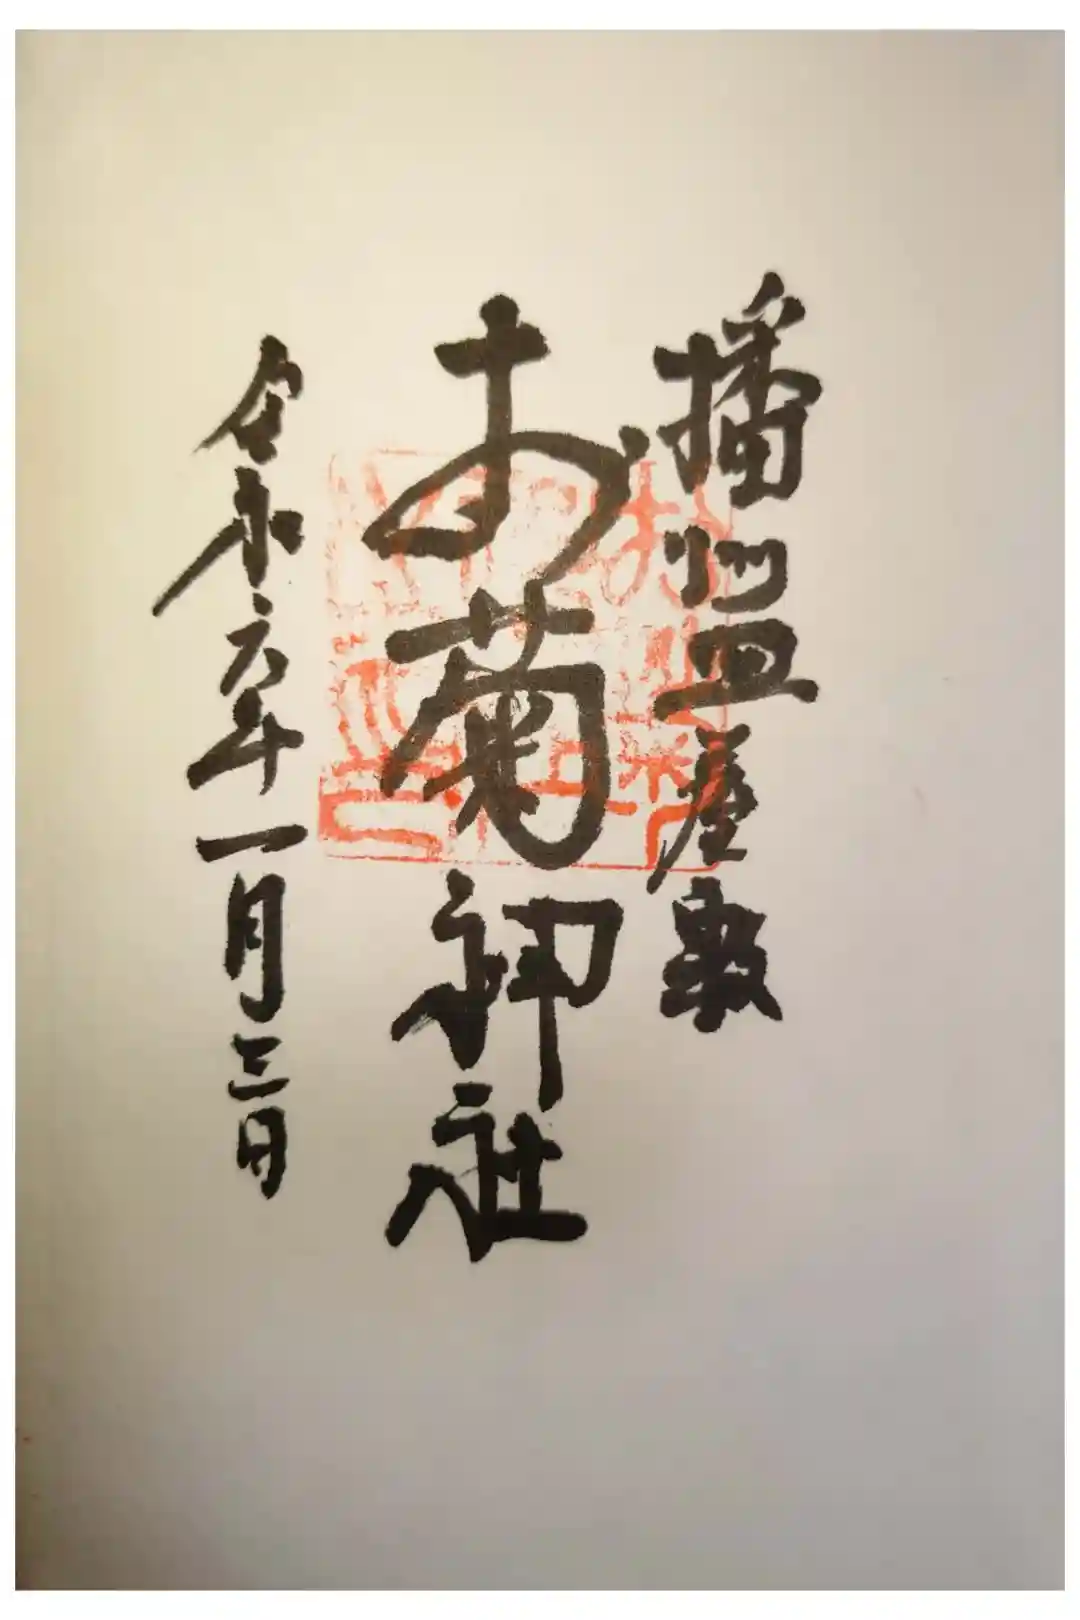 播州皿屋敷
お菊神社
令和六年一月三日